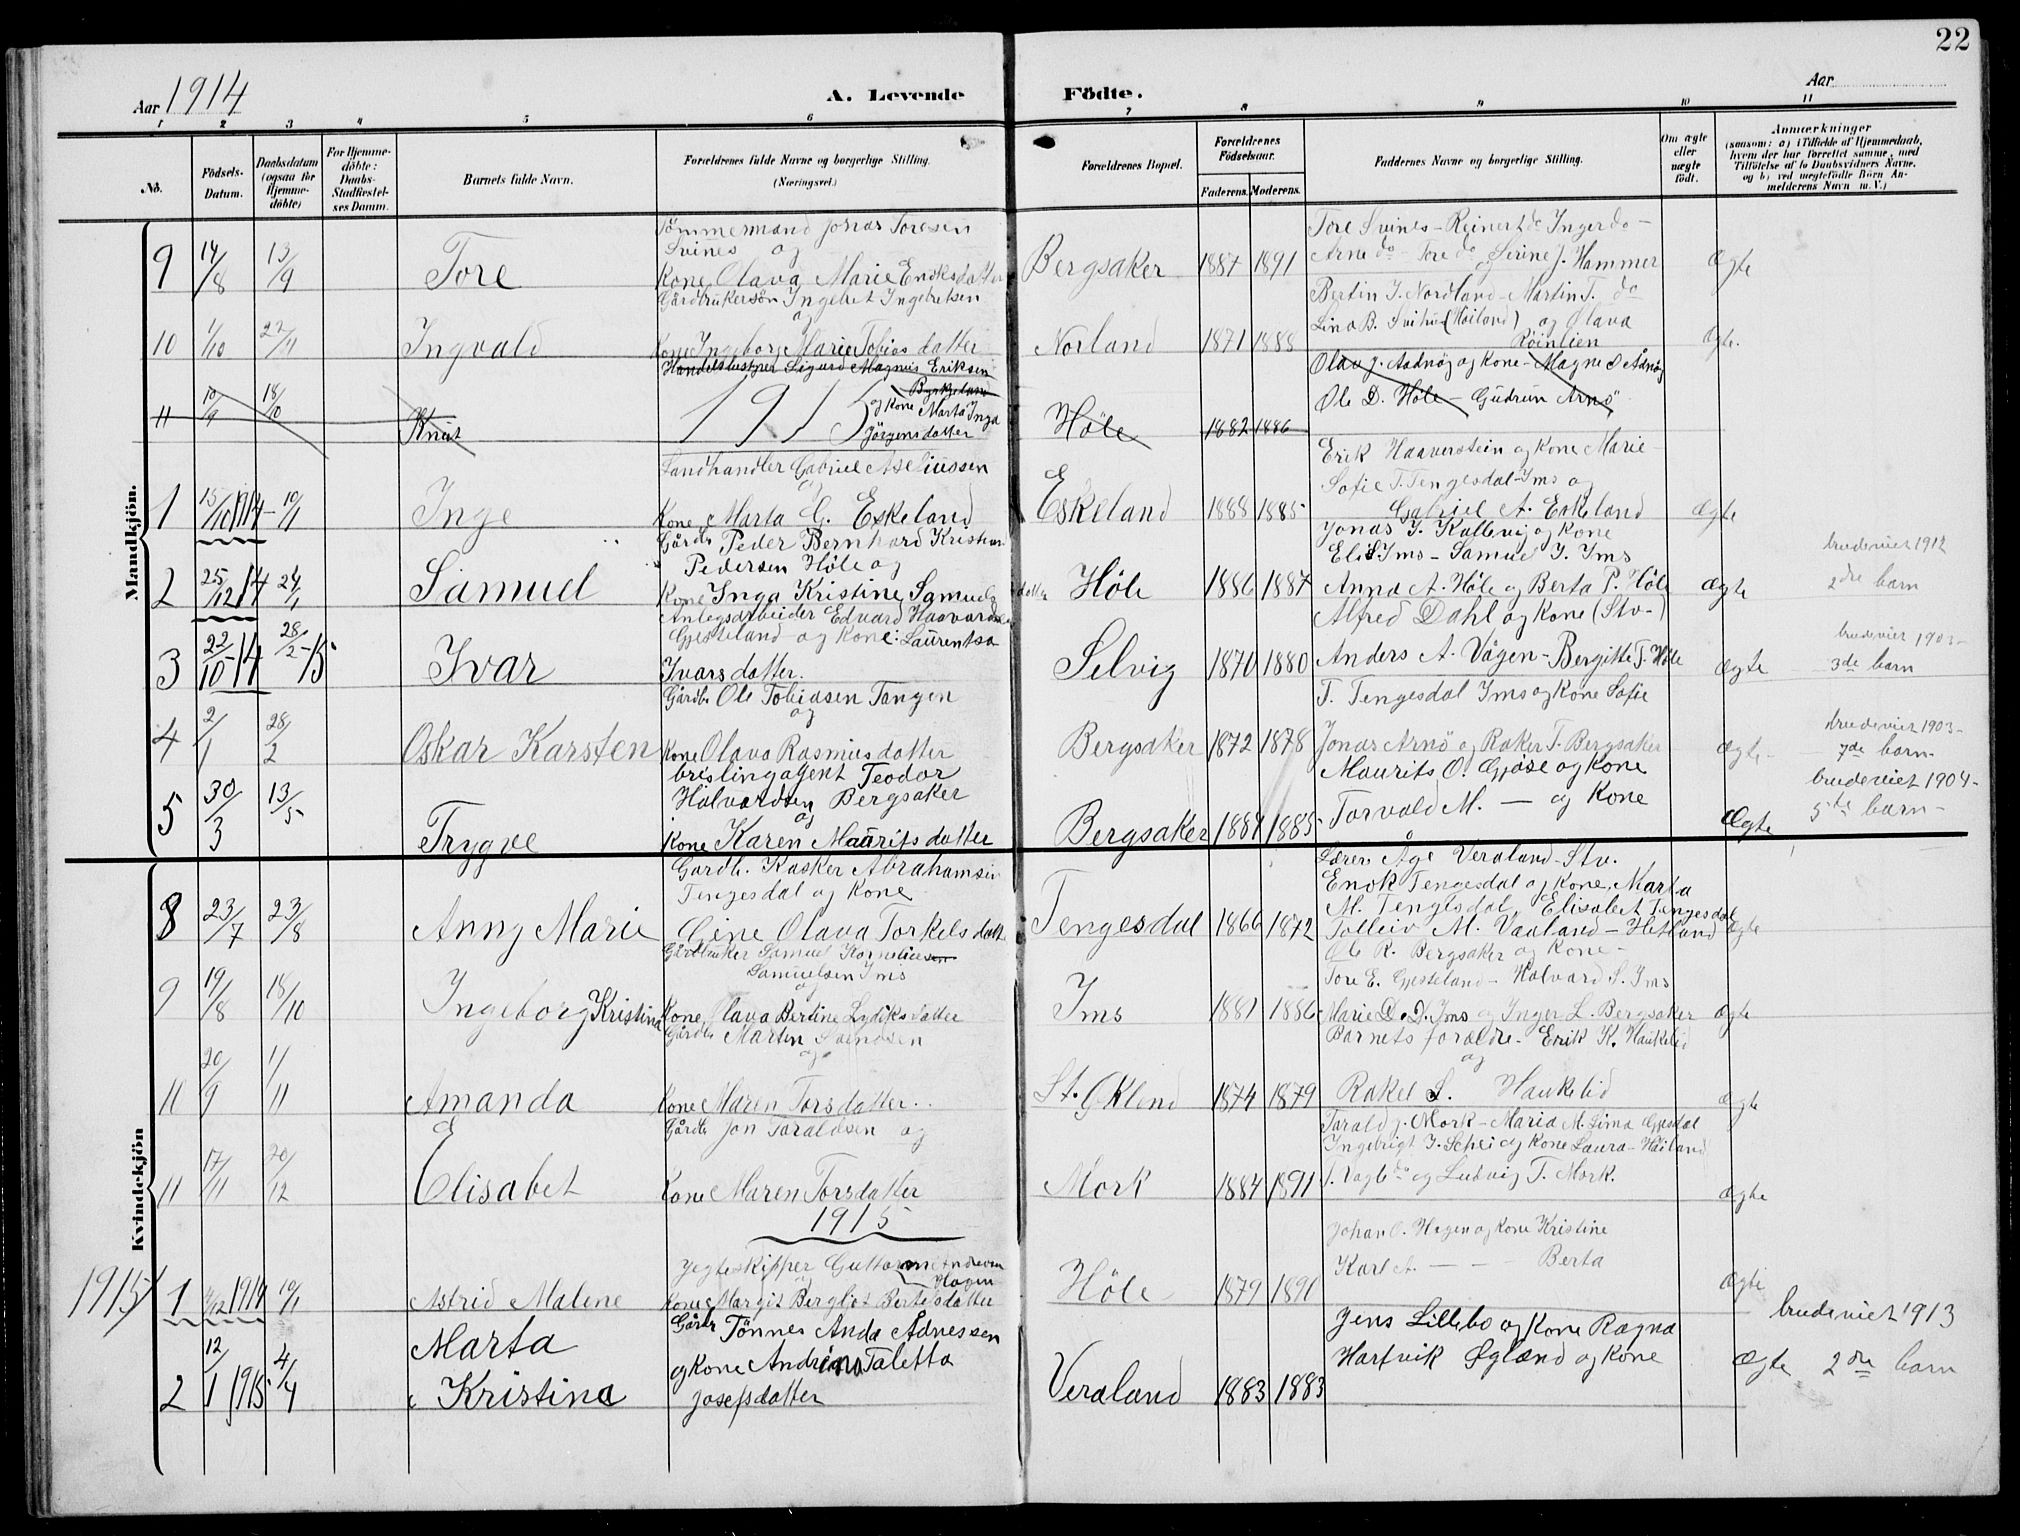 22
Aar 1914 A. Levende Födte. Aar
1 2 3 4 5 6 7 8 9 10 11
No. Födsels-Datum. Daabsdatum (ogsaa för Hjemme-döbte) For Hjemme-döbte: Daabs-Stadfæstel-ses Datum. Barnets fulde Navn. Forældrenes fulde Navne og borgerlige Stilling. (Næringsvei.) Forældrenes Bopæl. Forældrenes Födselsaar. Faderens. Moderens. Faddernes Navne og borgerlige Stilling. Om ægte eller uægte født. Anmærkninger (saasom: a) i Tilfælde af Hjemmedaab, hvem der har forrettet samme, med Tilföielse af to Daabsvidners Navne, og b) ved uægtefödte Börn An-melderens Navn m. V.)
Mandkjön.
9 14/8 13/9 Tore Tömmermand Jonas Toresen Svines og Kone Olava Marie Eriksdatter Bergsaker 1887 1891 Tore Svines - Reinert do Ingerdo - Arne do - Tore do og Sirine J. Hammer Ægte
10 1/10 22/11 Ingvald Gårdbrukersön Ingebret Ingebretsen og Kone Ingeborg Marie Tobias datter Norland 1871 1888 Bertin J. Nordland - Martin T. do Lina B. Svihus (Höiland) og Olava Röinlien Ægte.
11 10/9 18/10 Knut Handelsbestyrer Sigurd Magnus Eriksen Byrkjeland og Kone Marta Inga Jörgensdatter Höle 1882 1886 Olav J. Aadnöy og Kone - Magne S Ådnöy Ole D. Höle - Gudrun Arnö
1915
1 15/10 1914 10/1 Inge Landhandler Gabriel Aseliussen og Kone Marta G. Eskeland Eskeland 1888 1885 Erik Haaverstein og Kone Marie - Sofie T. Tengesdal - Ims og Gabriel A. Eskeland Ægte
2 25/12 14 24/1 Samuel Gårdb Peder Bernhard Kristian Pedersen Höle og Kone Inga Kristine Samuels datter Höle 1886 1887 Jonas J. Kallevig og Kone Elis Ims - Samuel J. Ims Anna A. Höle og Berta P. Höle Ægte brudeviet 1912 2dre barn
3 22/10-14 28/2-15 Ivar Anlegsarbeider Edvard Haavards Gjesteland og Kone: Laurentsa Ivarsdatter. Selvig 1870 1880 Alfred Dahl og Kone (Stv-) Anders A. Vågen - Bergitte T. Höle Ægte brudeviet 1903 - 3de barn
4 2/1 28/2 Oskar Karsten Gårdb. Ole Tobiasen Tangen og Kone Olava Rasmusdatter Bergsaker 1872 1878 T. Tengesdal Ims og Kone Sofie Jonas Arnö og Rakel T. Bergsaker Ægte - brudeviet 1903 - 7de barn -
5 30/3 13/5 Trygve brislingagent Teodor Halvordsen Bergsaker og Kone Karen Mauritsdatter Bergsaker 1884 1885 Maurits O. Gjöse og Kone Torvald M. — og Kone Ægte brudeviet 1904 - 5te barn -
Kvindekjön
8 23/7 23/8 Anny Marie Gardb. Kasker Abrahamsen Tengesdal og Kone Gine Olava Torkels datt Tengesdal 1866 1872 Lærer Åge Veraland - Stv. Enok Tengesdal og Kone, Marta M. Tengesdal, Elisabet Tengesdal Tolleiv M. Vaaland - Hetland Ægte
9 19/8 18/10 Ingeborg Kristina Gårdbruker Samuel Korneliusen Samuelsen Ims og Kone Olava Bertine Lydiksdatter Ims 1881 1886 Ole R. Bergsaker og Kone - Tore E. Gjesteland - Halvard S. Ims Marie D. D. Ims og Inger L. Bergsaker Ægte
10 20/9 1/11 Amanda Gårdb Martin Svendsen og Kone Maren Torsdatter.. St. Ökland 1874 1879 Barnets forældre - Erik K. Haukelid og Rakel S. Haukelid Ægte
11 17/11 20/12 Elisabet Gårdb Jon Taraldsen og Kone Maren Torsdatter Mork 1884 1891 Tarald J. Mork - Maria M. Lima Gjesdal Ingebrigt J. Schei og Kone Laura - Höiland J. Vagle do og Ludvig T. Mork. Ægte
1915
1915 1 4/12 1914 10/1 Astrid Malene Jegteskipper Guttorm Andreas Hagen og Kone Margit Bergljot Bertesdatter Höle 1879 1891 Johan O. Hagen og Kone Kristine Karl A. — — - Berta Ægte
2 12/1 1915 4/4 Marta Kristine Gårdb Tönnes Anda Adnessen og Kone Andriana Taletta Josefsdatter Veraland 1883 1883 Jens Lillebo og Kone Ragna Hartvik Øgland og Kone Ægte brudeviet 1913 2dre barn